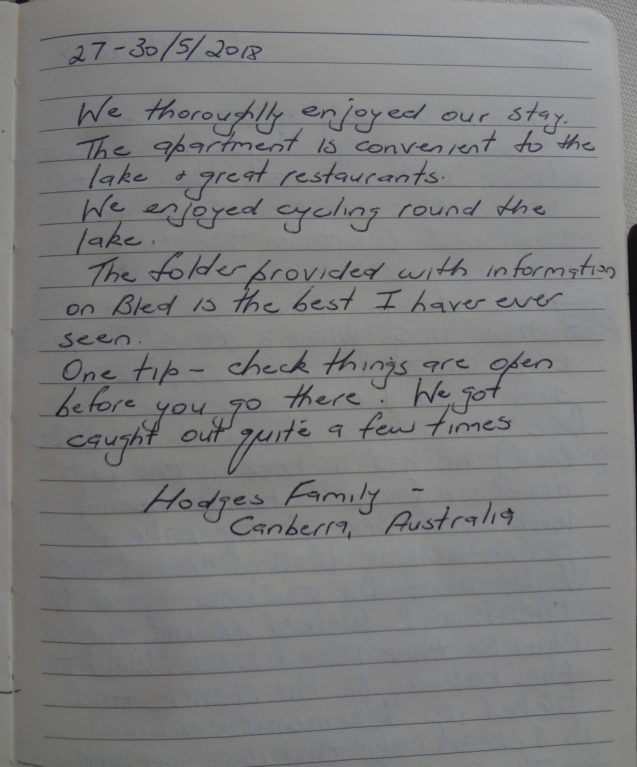 27-30/5/2018
We thoroughlly enjoyed our stay.
The apartment is convenient to the
lake & great restaurants.
We enjoyed cycling round the
lake.
The folder provided with information
on Bled is the best I have ever
seen.
One tip - check things are open
before you go there. We got
caught out quite a few times
Hodges Family -
Canberra, Australia